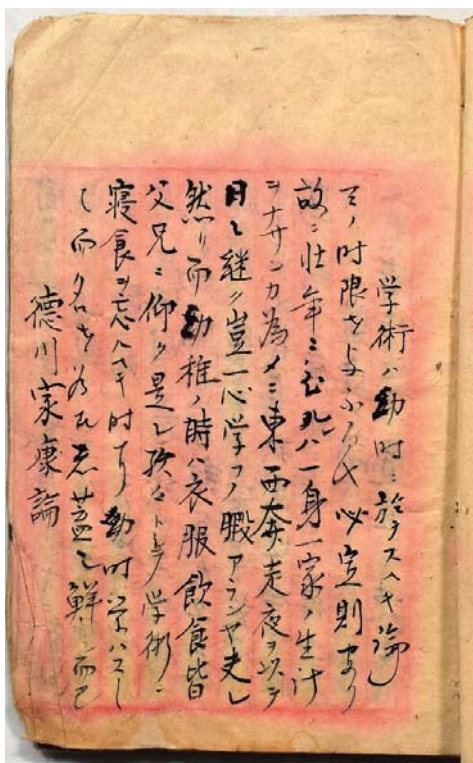 学術ハ幼時ニ於テスヘキ論
ノ時限ヲ
必定則アリ
故ニ壮年ニ至レハ一身一家ノ生計
ヲナサンカ為メニ東西奔走夜ヲ以テ
日ニ継ク豈一心学フノ暇アランヤ夫レ
然リ而幼稚ノ時ハ衣服飲食皆
父兄ニ仰ク是レ孜々トシテ学術ニ
寝食ヲ忘ルヘキ時ナリ幼時学ハスシ
テ而名ヲ為ス者蓋シ鮮シ而已
徳川家康論